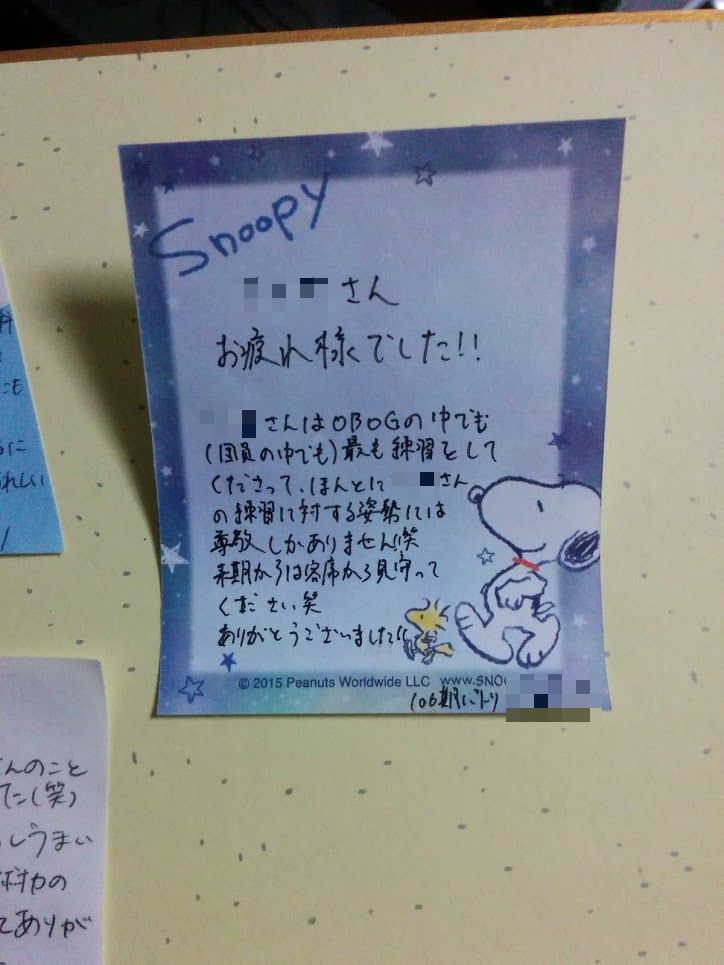 Snoopy
さん
お疲れ様でした!!
さんはOBOGの中でも
(団員の中でも)最も練習をして
くださって、ほんとに さん
の練習に対する姿勢には
尊敬しかありません笑
来期からは客席から見守って
ください笑
ありがとうございました!!
© 2015 Peanuts Worldwide LLC www.SNOO
106期
科
こも
らに
れしい
んのこと
てた(笑)
しうまい
材力の
てありが